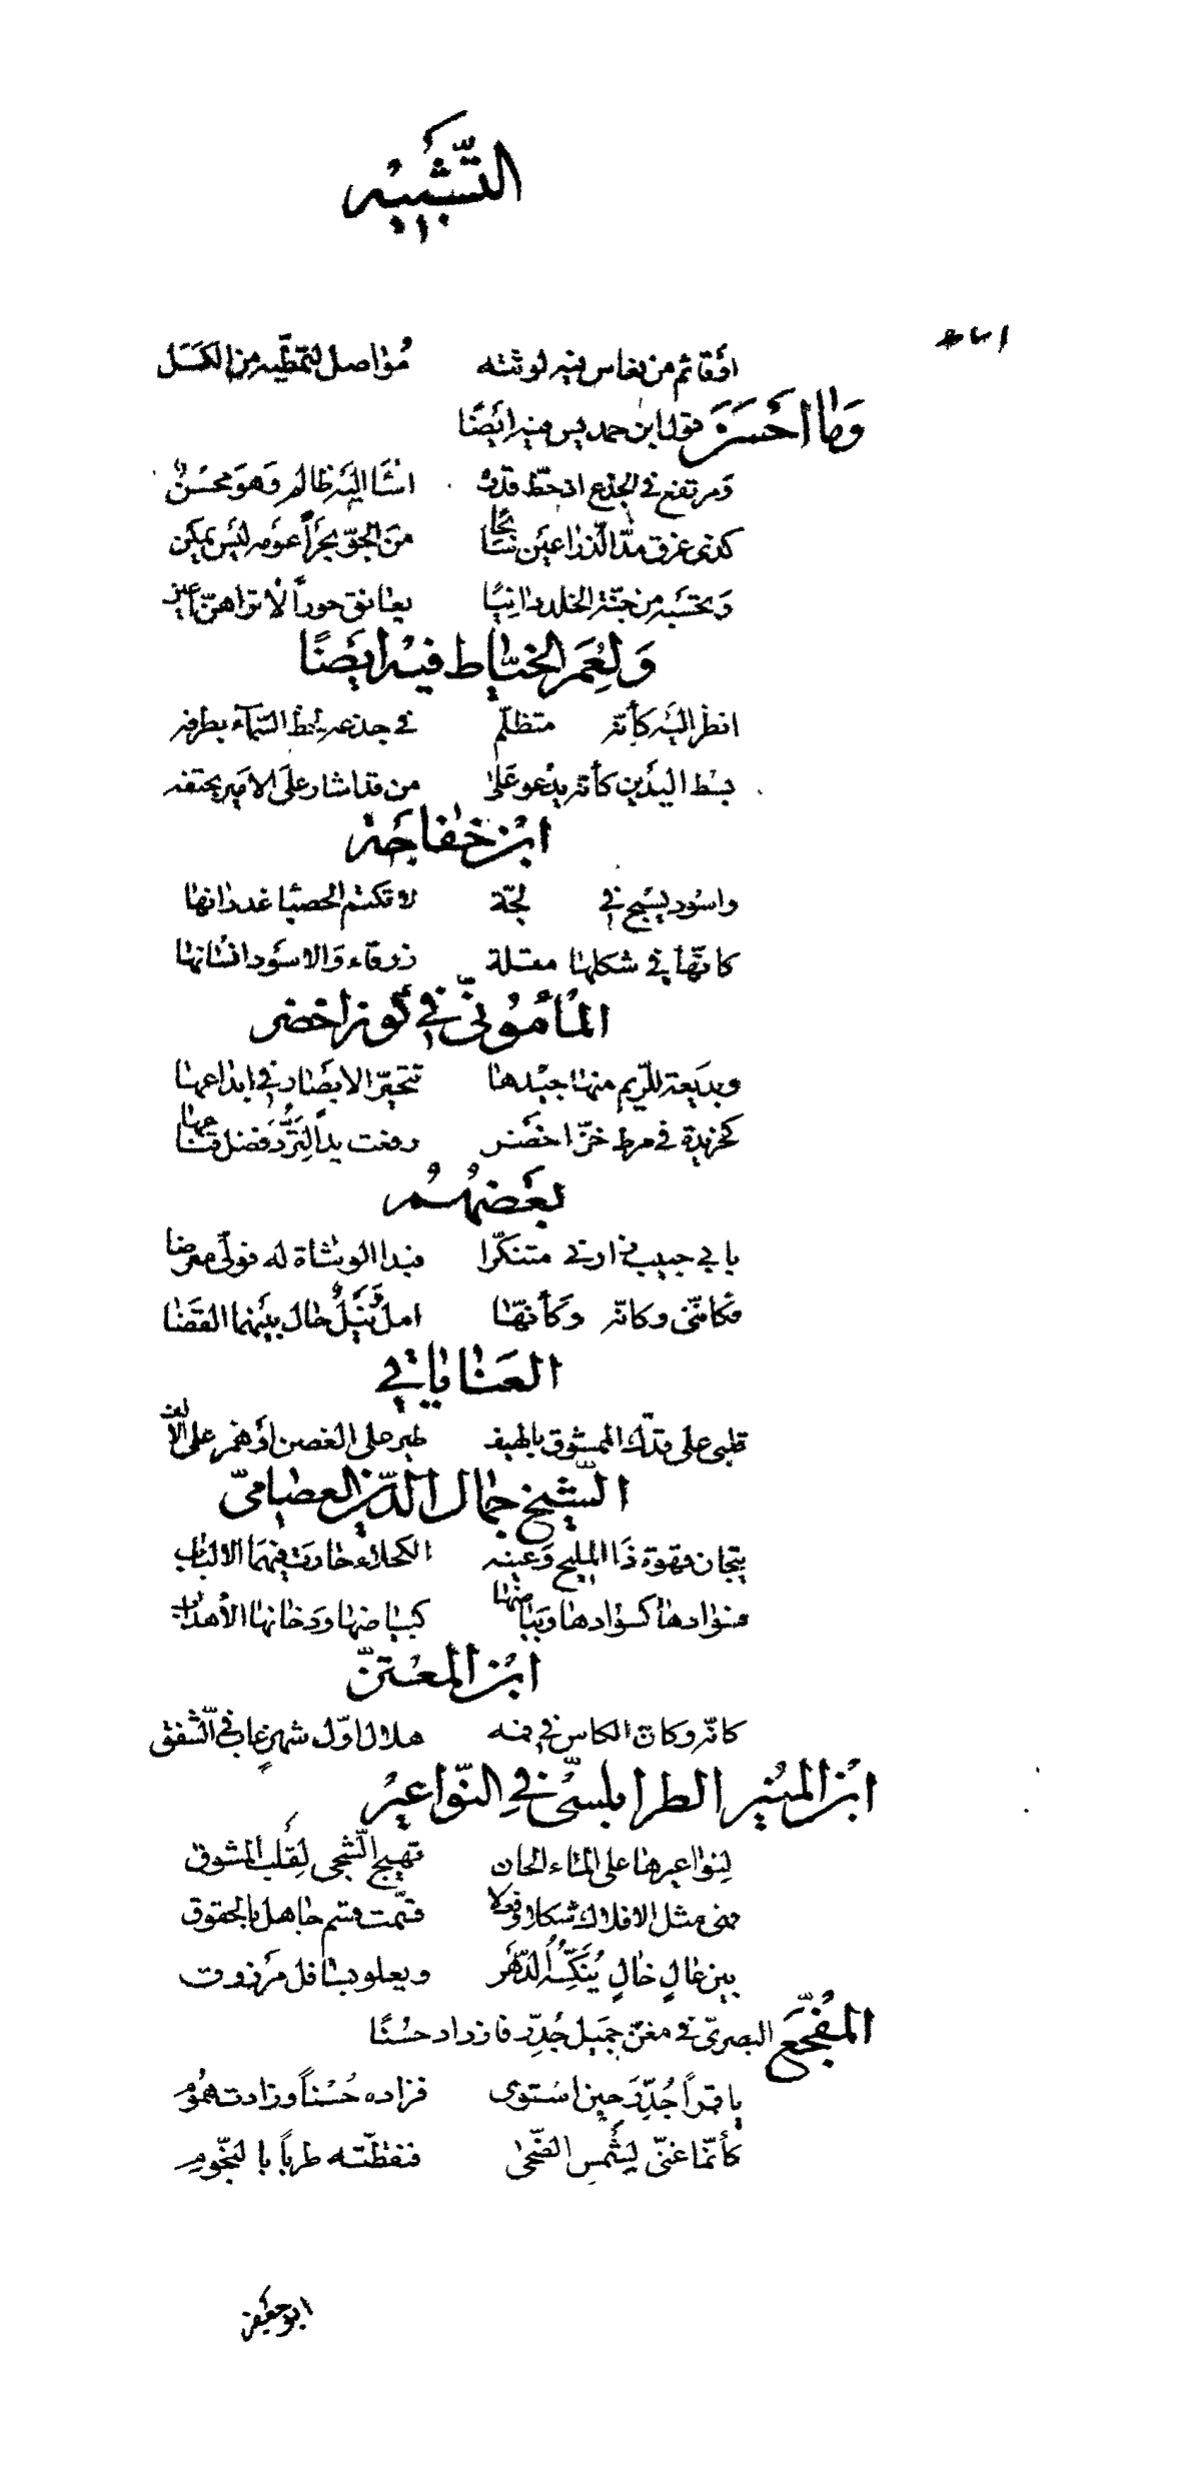 التَّشبيه
أو قائم من نعاس فيه لوثته مُواصل لتمطّيه من الكسَل
وما أحسَن قول ابن حمديس فيه أيضًا
ومرتفع في الجذع اذ حطّ قدره أسَا إليه ظالم وَهوَ محسنُ
كذى غرق مدّ الذّراعين سَابحًا منَ الجوّ بحرًا عومه ليس يمكن
وتحسَبه من جنّة الخلد دانيًا يعانق حورًا لا تراهنّ أعين
وَلِعُمَر الخيّاط فيه أيضًا
انظر إليه كأنه متظلّم في جذعه لحظ السّماء بطرفه
بسَط اليدين كأنه يدعو عَلى من قد اشار على الأمير بحتفه
ابن خفاجة
واسود يسبح في لجّة لا تكتم الحصبا غدرانها
كانّها في شكلها مقلة زرقاء وَالاسود انسَانها
المأمونيّ في كوز اخضر
وبديعة للرّيم منها جيدها تتحيّر الابصَار في ابداعها
كخريدة في مرط خزّ اخضَر رفعت يدًا لِتَرُدَّ فضل قناعها
بعضهم
بابي حبيب زارني متنكّرا فبدا الوشاة له فولّى معرضا
فكأنّني وكانه وكأنهّا املٌ ونَيلٌ حال بينهما القضَا
العناياتي
قلبي على قدّك الممشوق بالهيف طير على الغصن أو همز على الألف
الشيخ جمال الدّين العصاميّ
فنجان قهوة ذَا المليح وَعينه الكحلاء حارت فيهمَا الالباب
فسَوادها كسَوادها وبيَاضها كبيَاضها ودخانها الأهداب
ابن المعتزّ
كانّه وكان الكاس في فمه هلال اوّل شهرٍ غاب في الشّفق
ابن المنير الطرابلسيّ في النّواعير
لنواعيرها على الماء الحان تهيج الشّجى لِقلب المشوق
فهى مثل الافلاك شكلا وفعلا قسّمت قسم جاهل بالحقوق
بين عالٍ خالٍ يُنَكّسُهُ الدّهر ويعلو بسافل مرزوق
المفجّع البصريّ في مغنّ جميل جُدِّر فازداد حسْنًا
يا قمرًا جُدِّرَ حين استوى فزاده حُسْنًا وزادت همُوم
كأنّما غنّى لِشمس الضّحى فنقّطته طربًا بالنّجوم
ابو جعفر